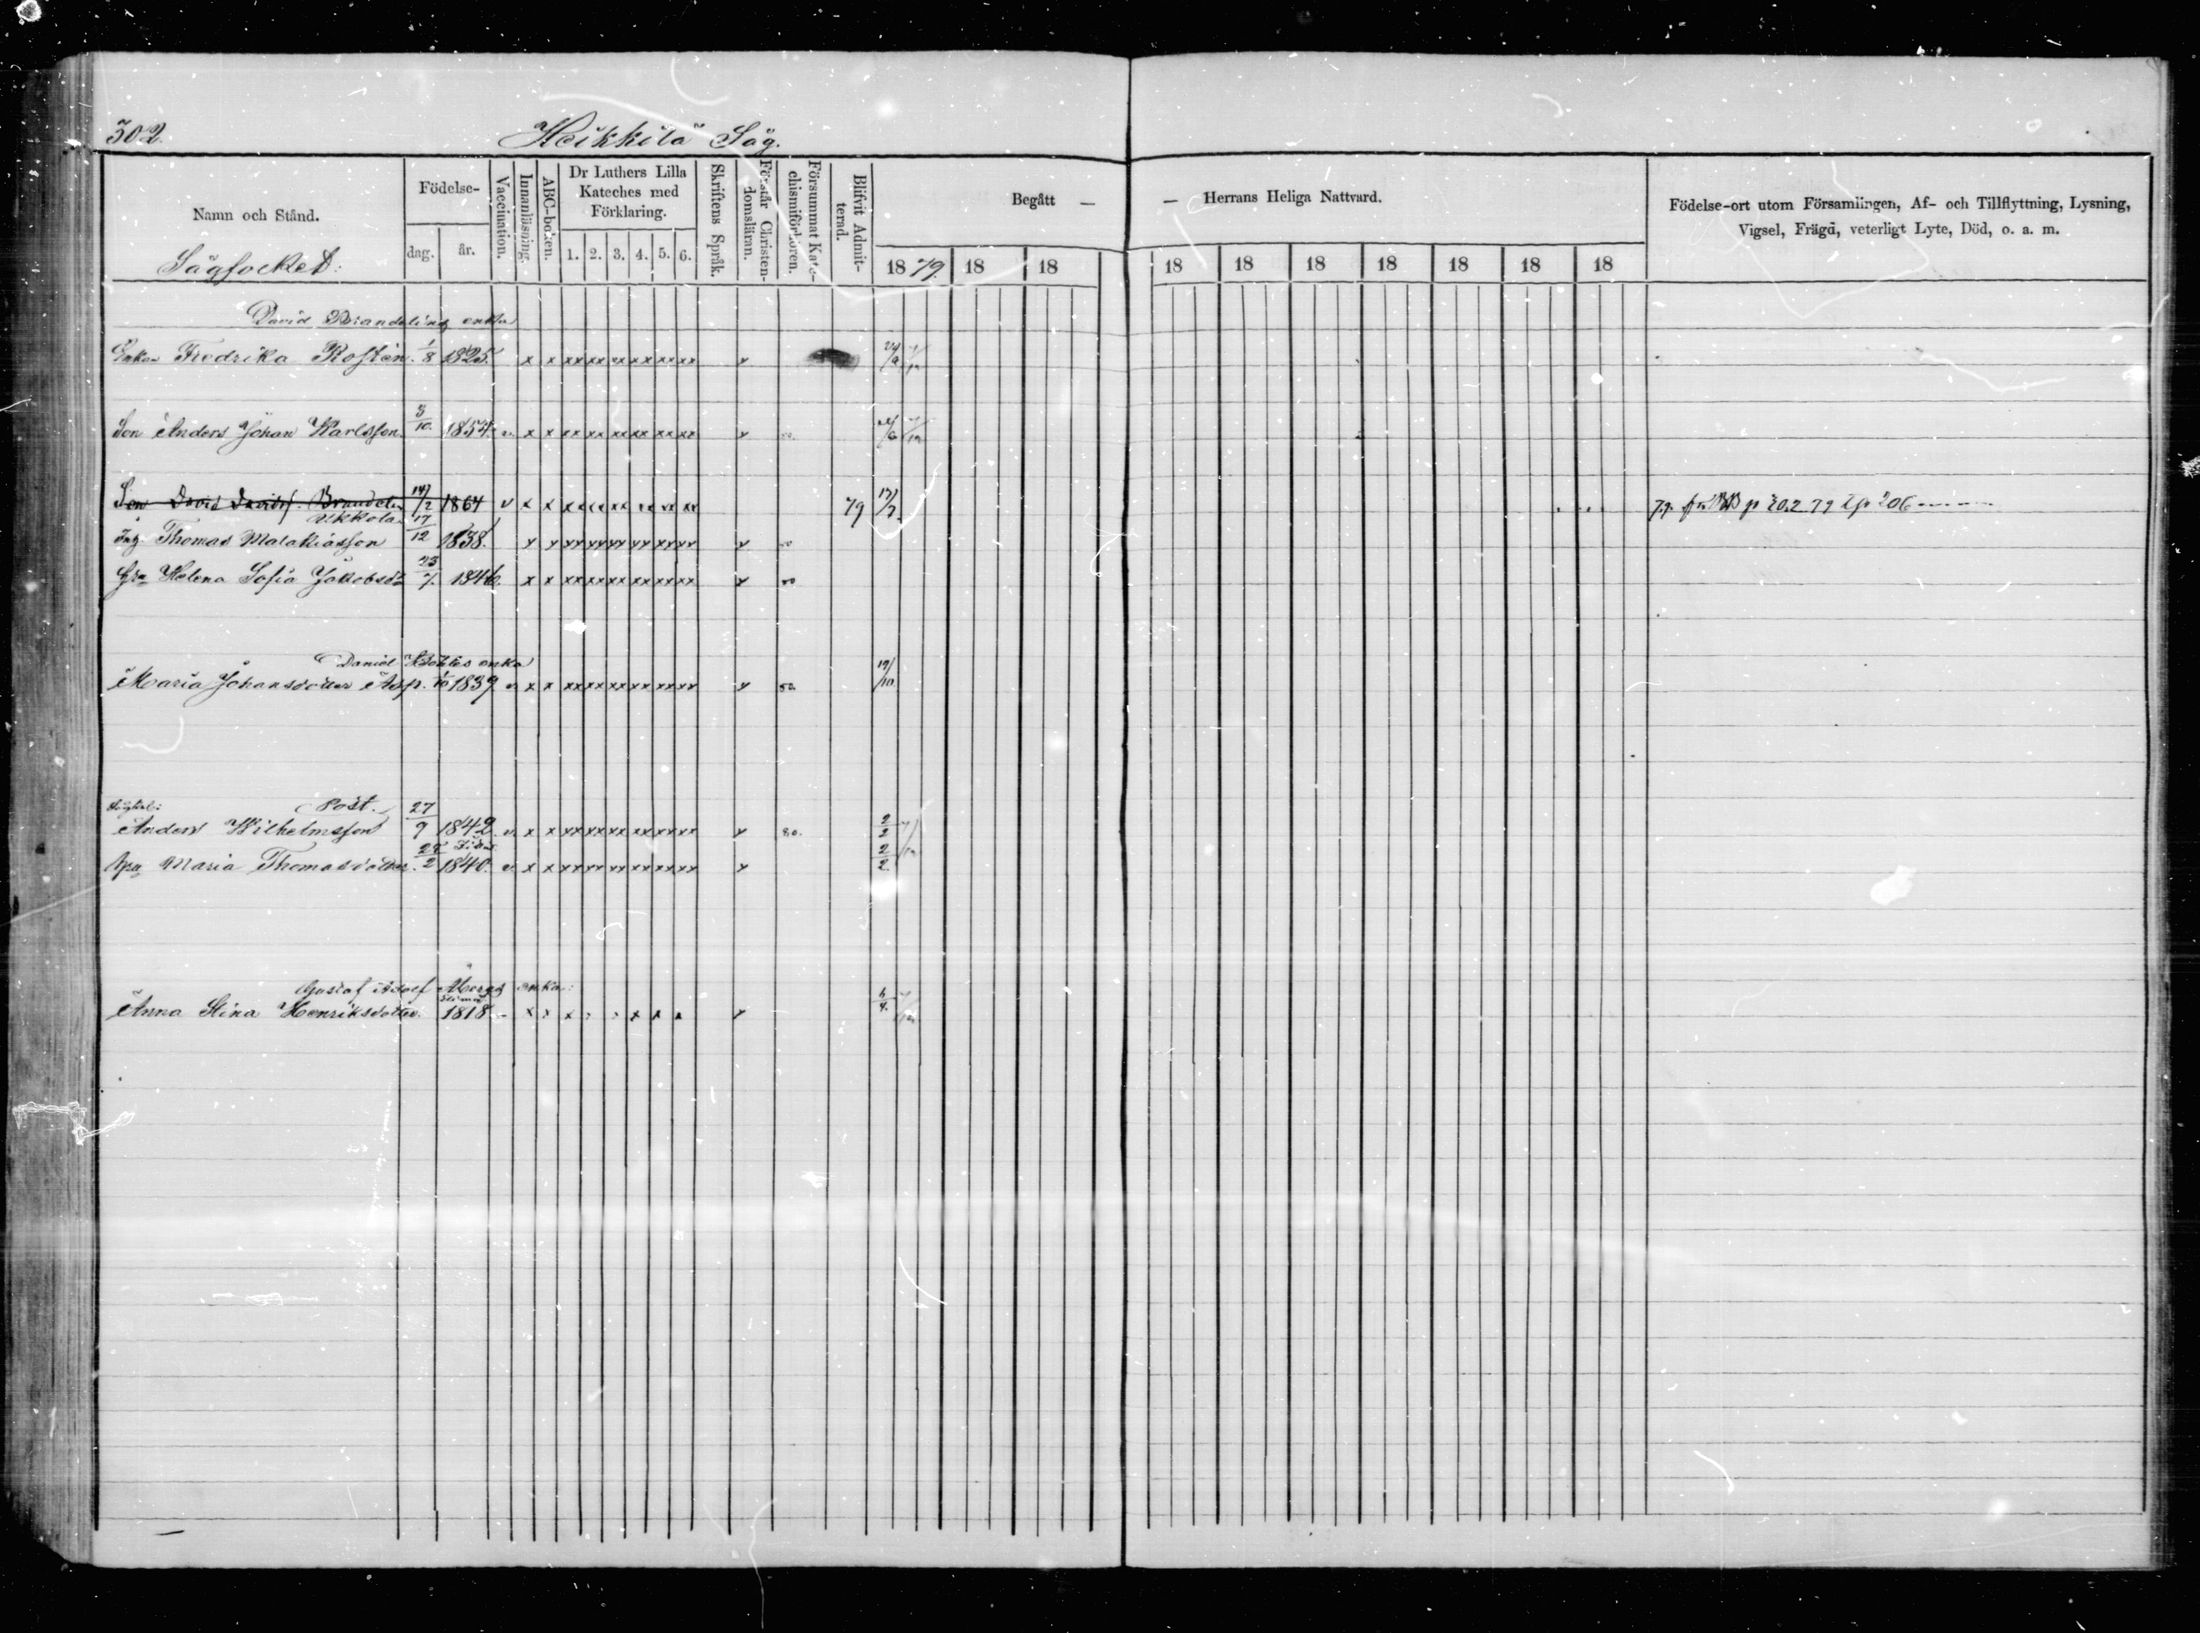 302.
Heikkilä Såg.
Namn och Stånd.
Födelse-
dag. år.
Vaccination.
Innanläsning.
ABC-boken.
Dr Luthers Lilla
Kateches med
Förklaring.
1. 2. 3. 4. 5. 6.
Skriftens Språk.
Förstår Christen-
domsläran.
Försummat Kate-
chismiförhören.
Blifvit Admit-
terad.
Begått —
— Herrans Heliga Nattvard.
1879. 18 18 18 18 18 18 18 18 18
Födelse-ort utom Församlingen, Af- och Tillflyttning, Lysning,
Vigsel, Frägd, veterligt Lyte, Död, o. a. m.
Sågfolket:
David Brandelins enka
Enkan Fredrika Rostén. 1/8 1825. x x xx xx xx xx xx xx
Son Anders Johan Karlsson 3/10. 1854. v. x x xx xx xx xx xx xx
Son David Davidss. Brandelin 14/2 1864 v x x xx xx xx xx xx xx 79 79. p 202 79 206
Ukkola
Thomas Malakiasson 17/12 1838.
Hru Helena Sofia Jakobsd 23/7. 1846. x x xx xx xx xx xx xx
Daniel enka
Maria Johansdotter Asp. 1839 v. x x xx xx xx xx xx xx 19/10
Post.
Anders Wilhelmsson 27/9 1842. v. x x xx xx xx xx xx xx 80. 2/2
Hru Maria Thomasdotter. 1840. v. x x xx xx xx xx xx xx 2/2.
Gustaf Adolf Åbergs enka:
Anna Stina Henriksdotter. 1818